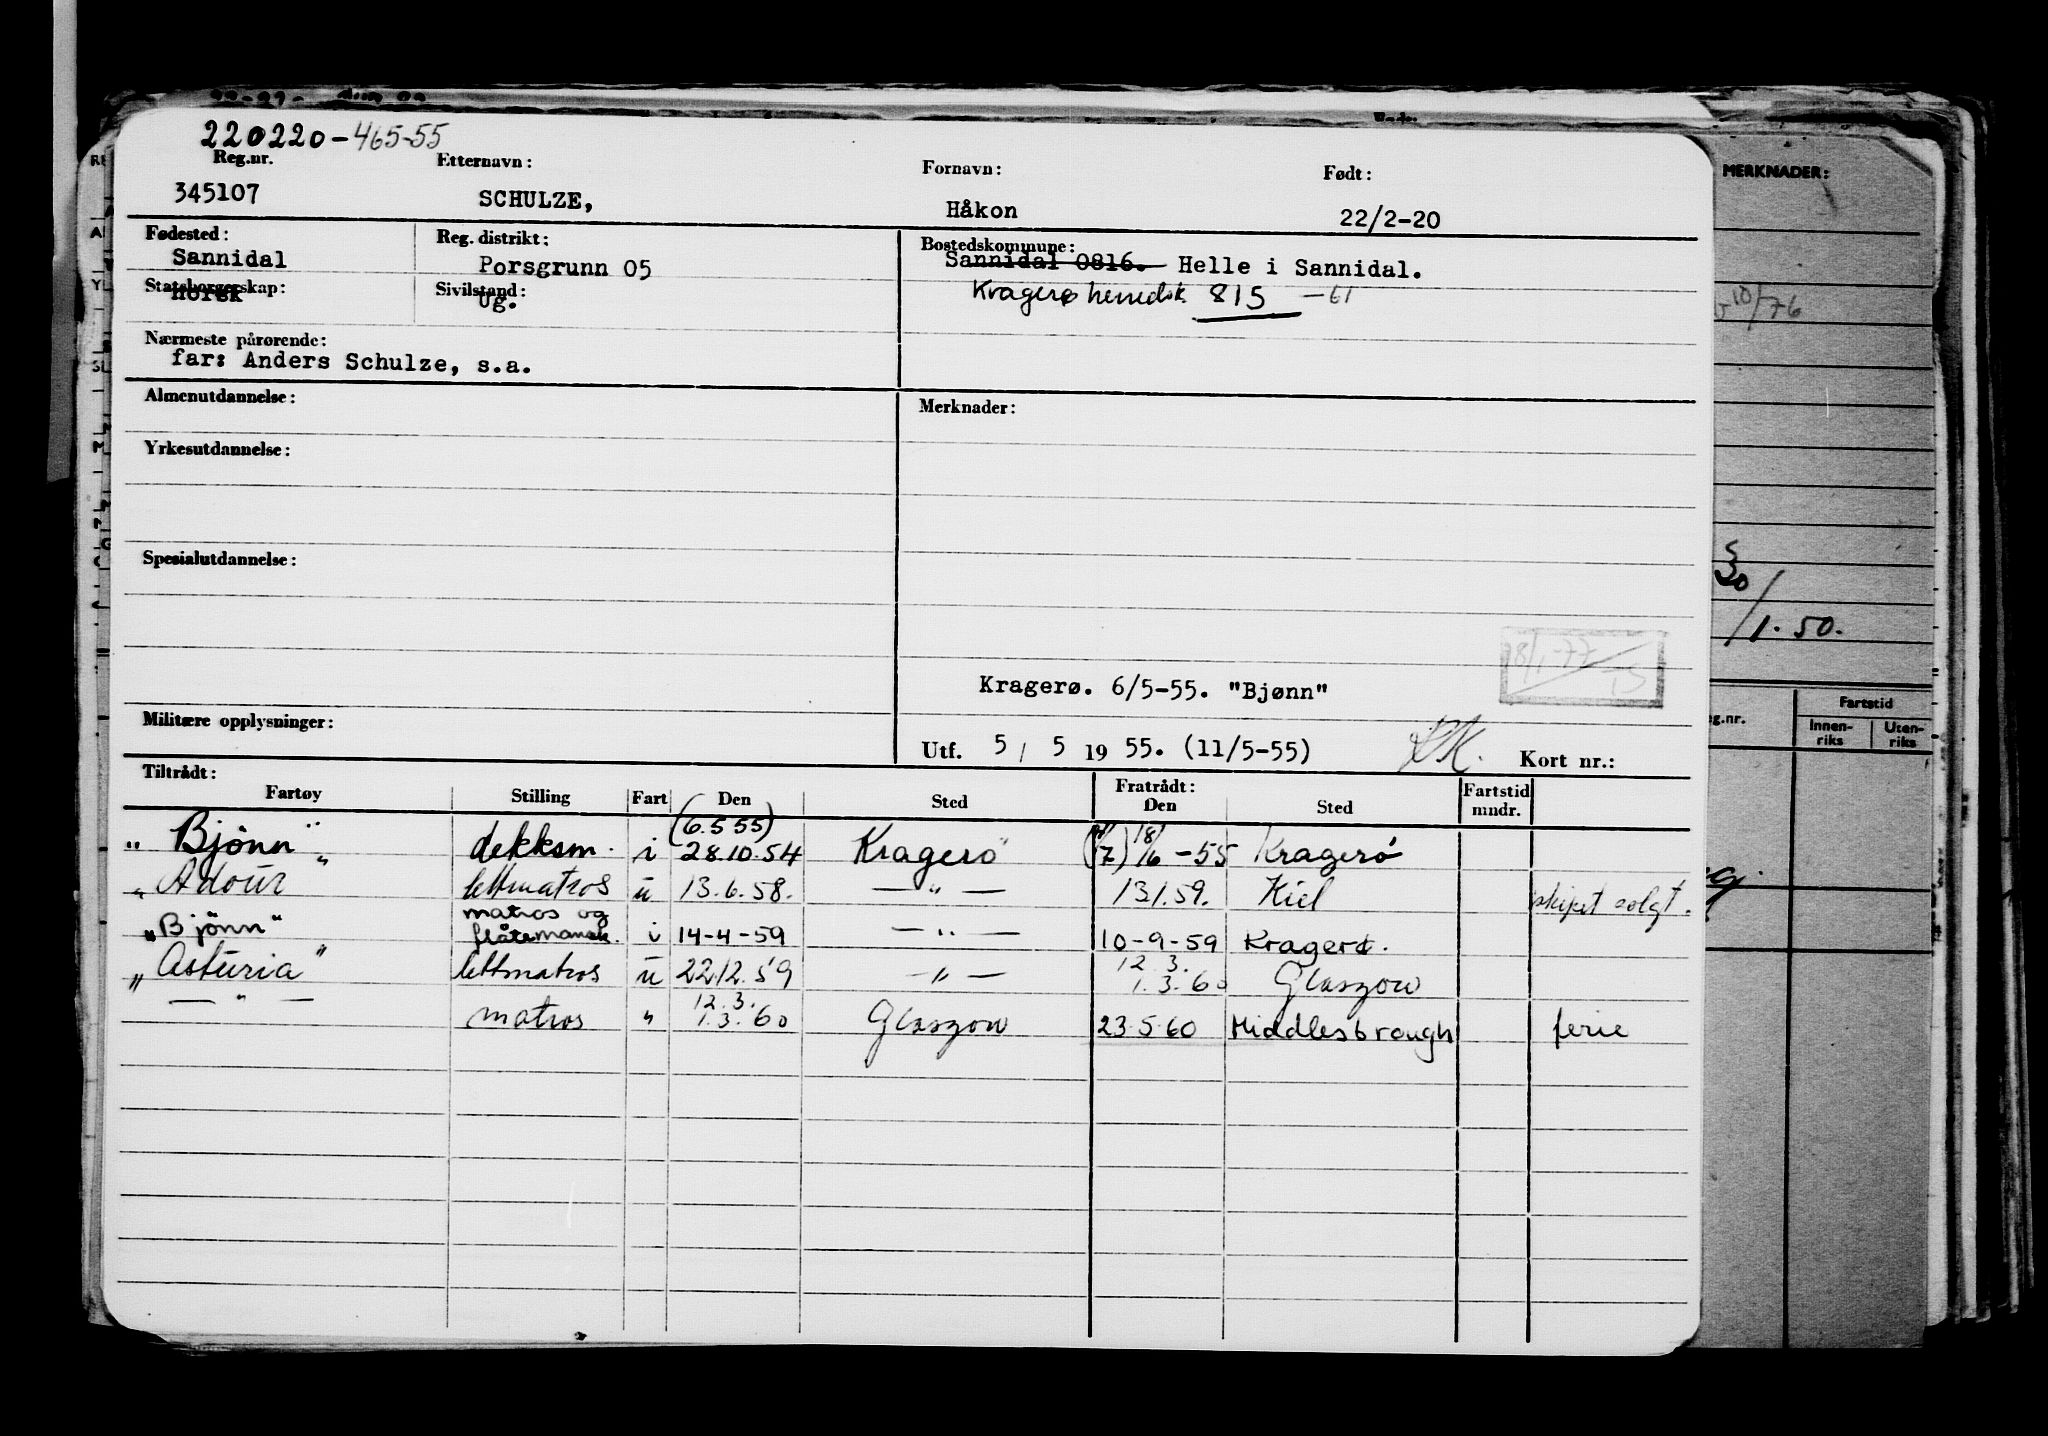 220220-465-55
Reg.nr. Etternavn: Fornavn: Født:
345107 SCHULZE, Håkon 22/2-20
Fødested: Reg. distrikt: Bostedskommune:
Sannidal Porsgrunn 05 Sannidal 0816. Helle i Sannidal.
Statsborgerskap: Sivilstand:
norsk Ug. Kragerø herredsk. 815 -61
Nærmeste pårørende:
far: Anders Schulze, s.a.
Almenutdannelse: Merknader:
Yrkesutdannelse:
Spesialutdannelse:
18/1-77
Kragerø. 6/5-55. "Bjønn"
Militære opplysninger:
Utf. 5/ 5 19 55. (11/5-55) Kort nr.:
Tiltrådt: Fratrådt:
Fartøy Stilling Fart Den Sted Den Sted Fartstid mndr.
(6.5 55)
"Bjønn" dekksm. i 28.10.54 Kragerø 18/6-55 Kragerø
"Adour" lettmatros u 13.6.58. — " — 13 1.59. Kiel skipet solgt.
matros og
"Bjönn" flåtemannsk. i 14-4-59 — " — 10-9-59 Kragerø.
12.3.
"Asturia" lettmatros u 22.12.59 — " — 1.3.60 Glasgow
— " — 12.3.
matros " 1.3.60 Glasgow 23.5.60 Middlesbrough ferie
MERKNADER:
10/76
30/1.50.
g.nr. Fartstid
Innen-riks Uten-riks